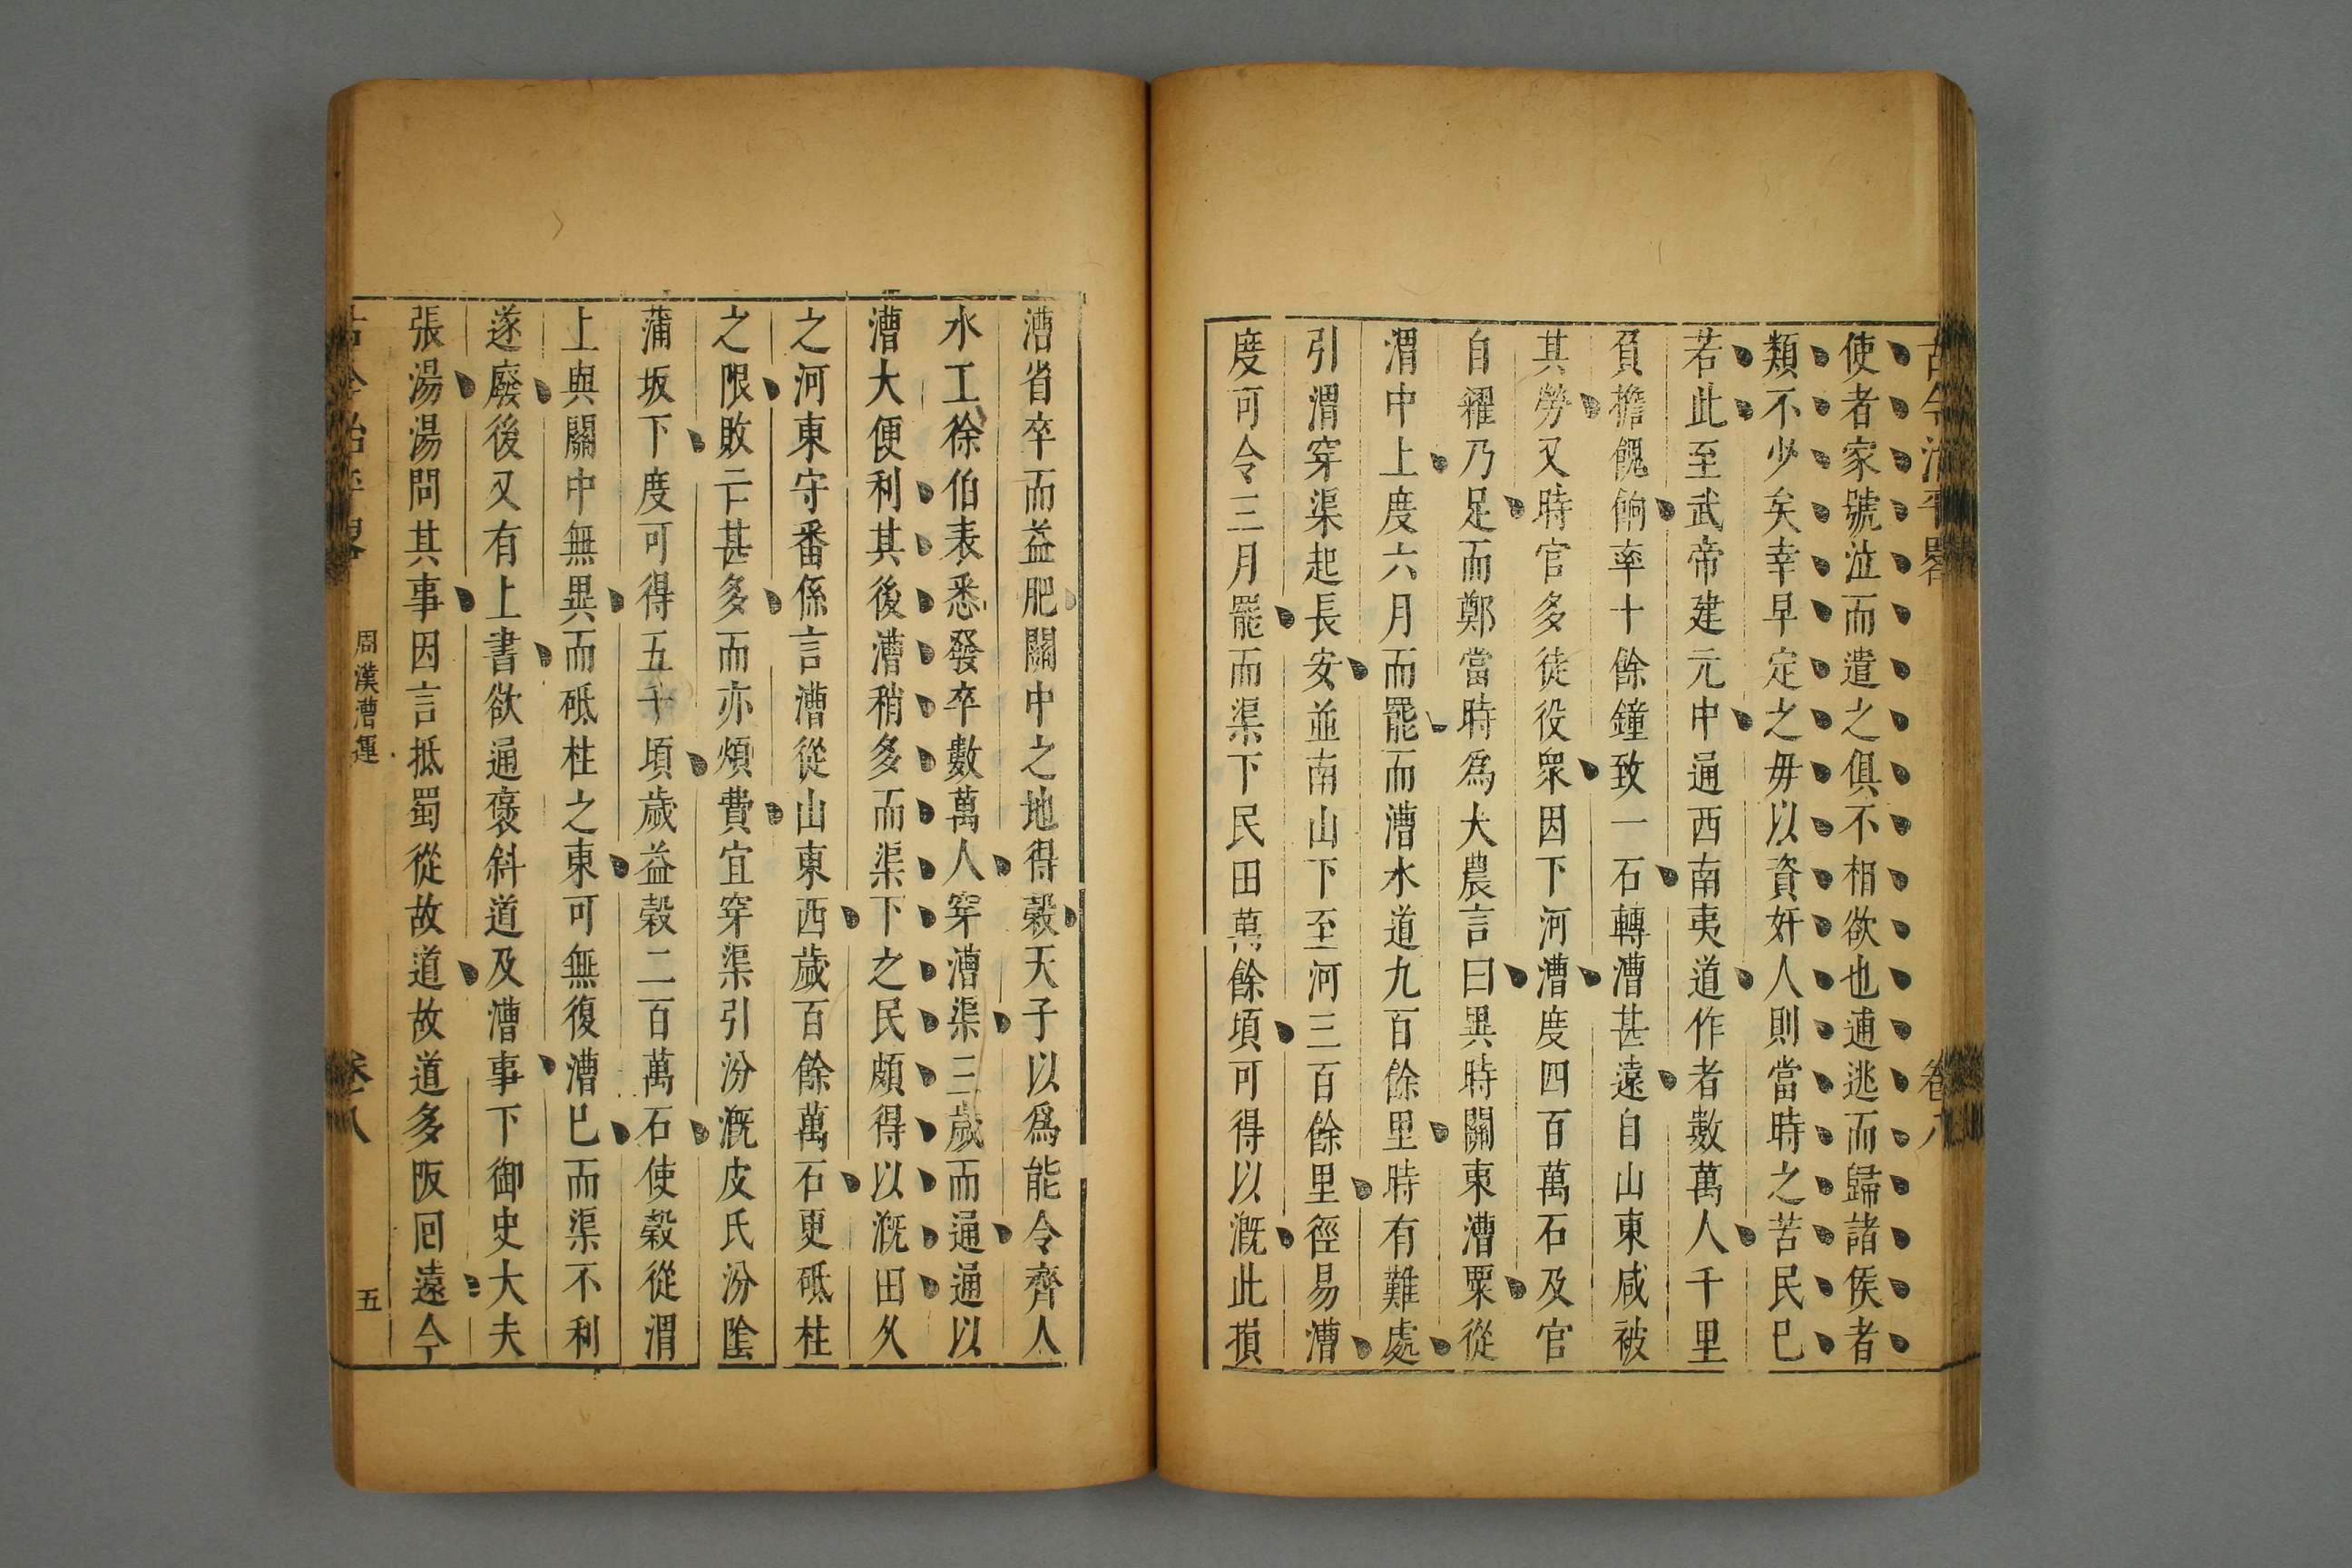 古今治平畧 卷八
使者家號泣而遣之俱不相欲也逋逃而歸諸侯者
類不少矣幸早定之毋以資奸人則當時之苦民巳
若此至武帝建元中通西南夷道作者數萬人千里
負擔餽餉率十餘鐘致一石轉漕甚遠自山東咸被
其勞又時官多徒役衆因下河漕度四百萬石及官
自糴乃足而鄭當時爲大農言曰異時關東漕粟從
渭中上度六月而罷而漕水道九百餘里時有難處
引渭穿渠起長安並南山下至河三百餘里徑易漕
度可令三月罷而渠下民田萬餘頃可得以溉此損
漕省卒而益肥關中之地得穀天子以爲能令齊人
水工徐伯表悉發卒數萬人穿漕渠三歲而通通以
漕大便利其後漕稍多而渠下之民頗得以溉田久
之河東守番係言漕從山東西歲百餘萬石更砥柱
之限敗亡甚多而亦煩費宜穿渠引汾溉皮氏汾陰
蒲坂下度可得五千頃歲益穀二百萬石使穀從渭
上與關中無異而砥柱之東可無復漕巳而渠不利
遂廢後又有上書欲通褒斜道及漕事下御史大夫
張湯湯問其事因言抵蜀從故道故道多阪回遠今
古今治平畧 周漢漕運 卷八 五